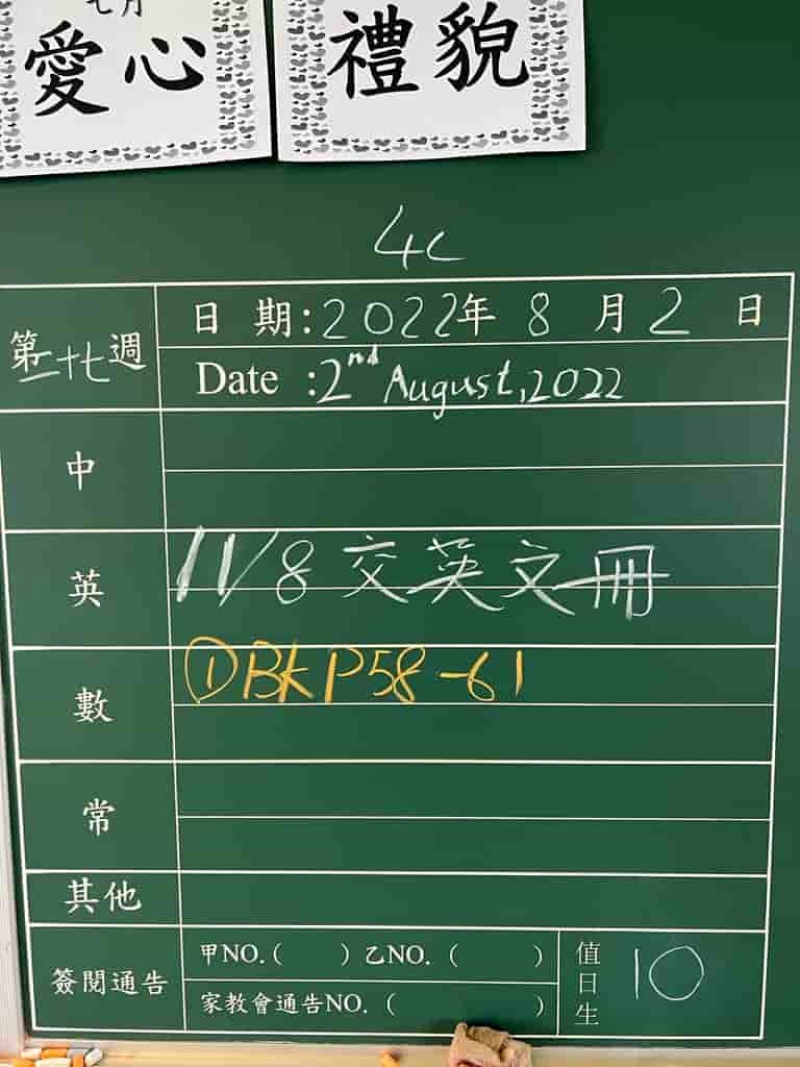 七月
愛心
禮貌
4C
第二十七週
日期:2022年8月2日
Date :2nd August,2022
中
英
11/8 交英文冊
數
①Bk P58-61
常
其他
簽閱通告
甲NO.( ) 乙NO. ( )
家教會通告NO. ( )
值日生
10